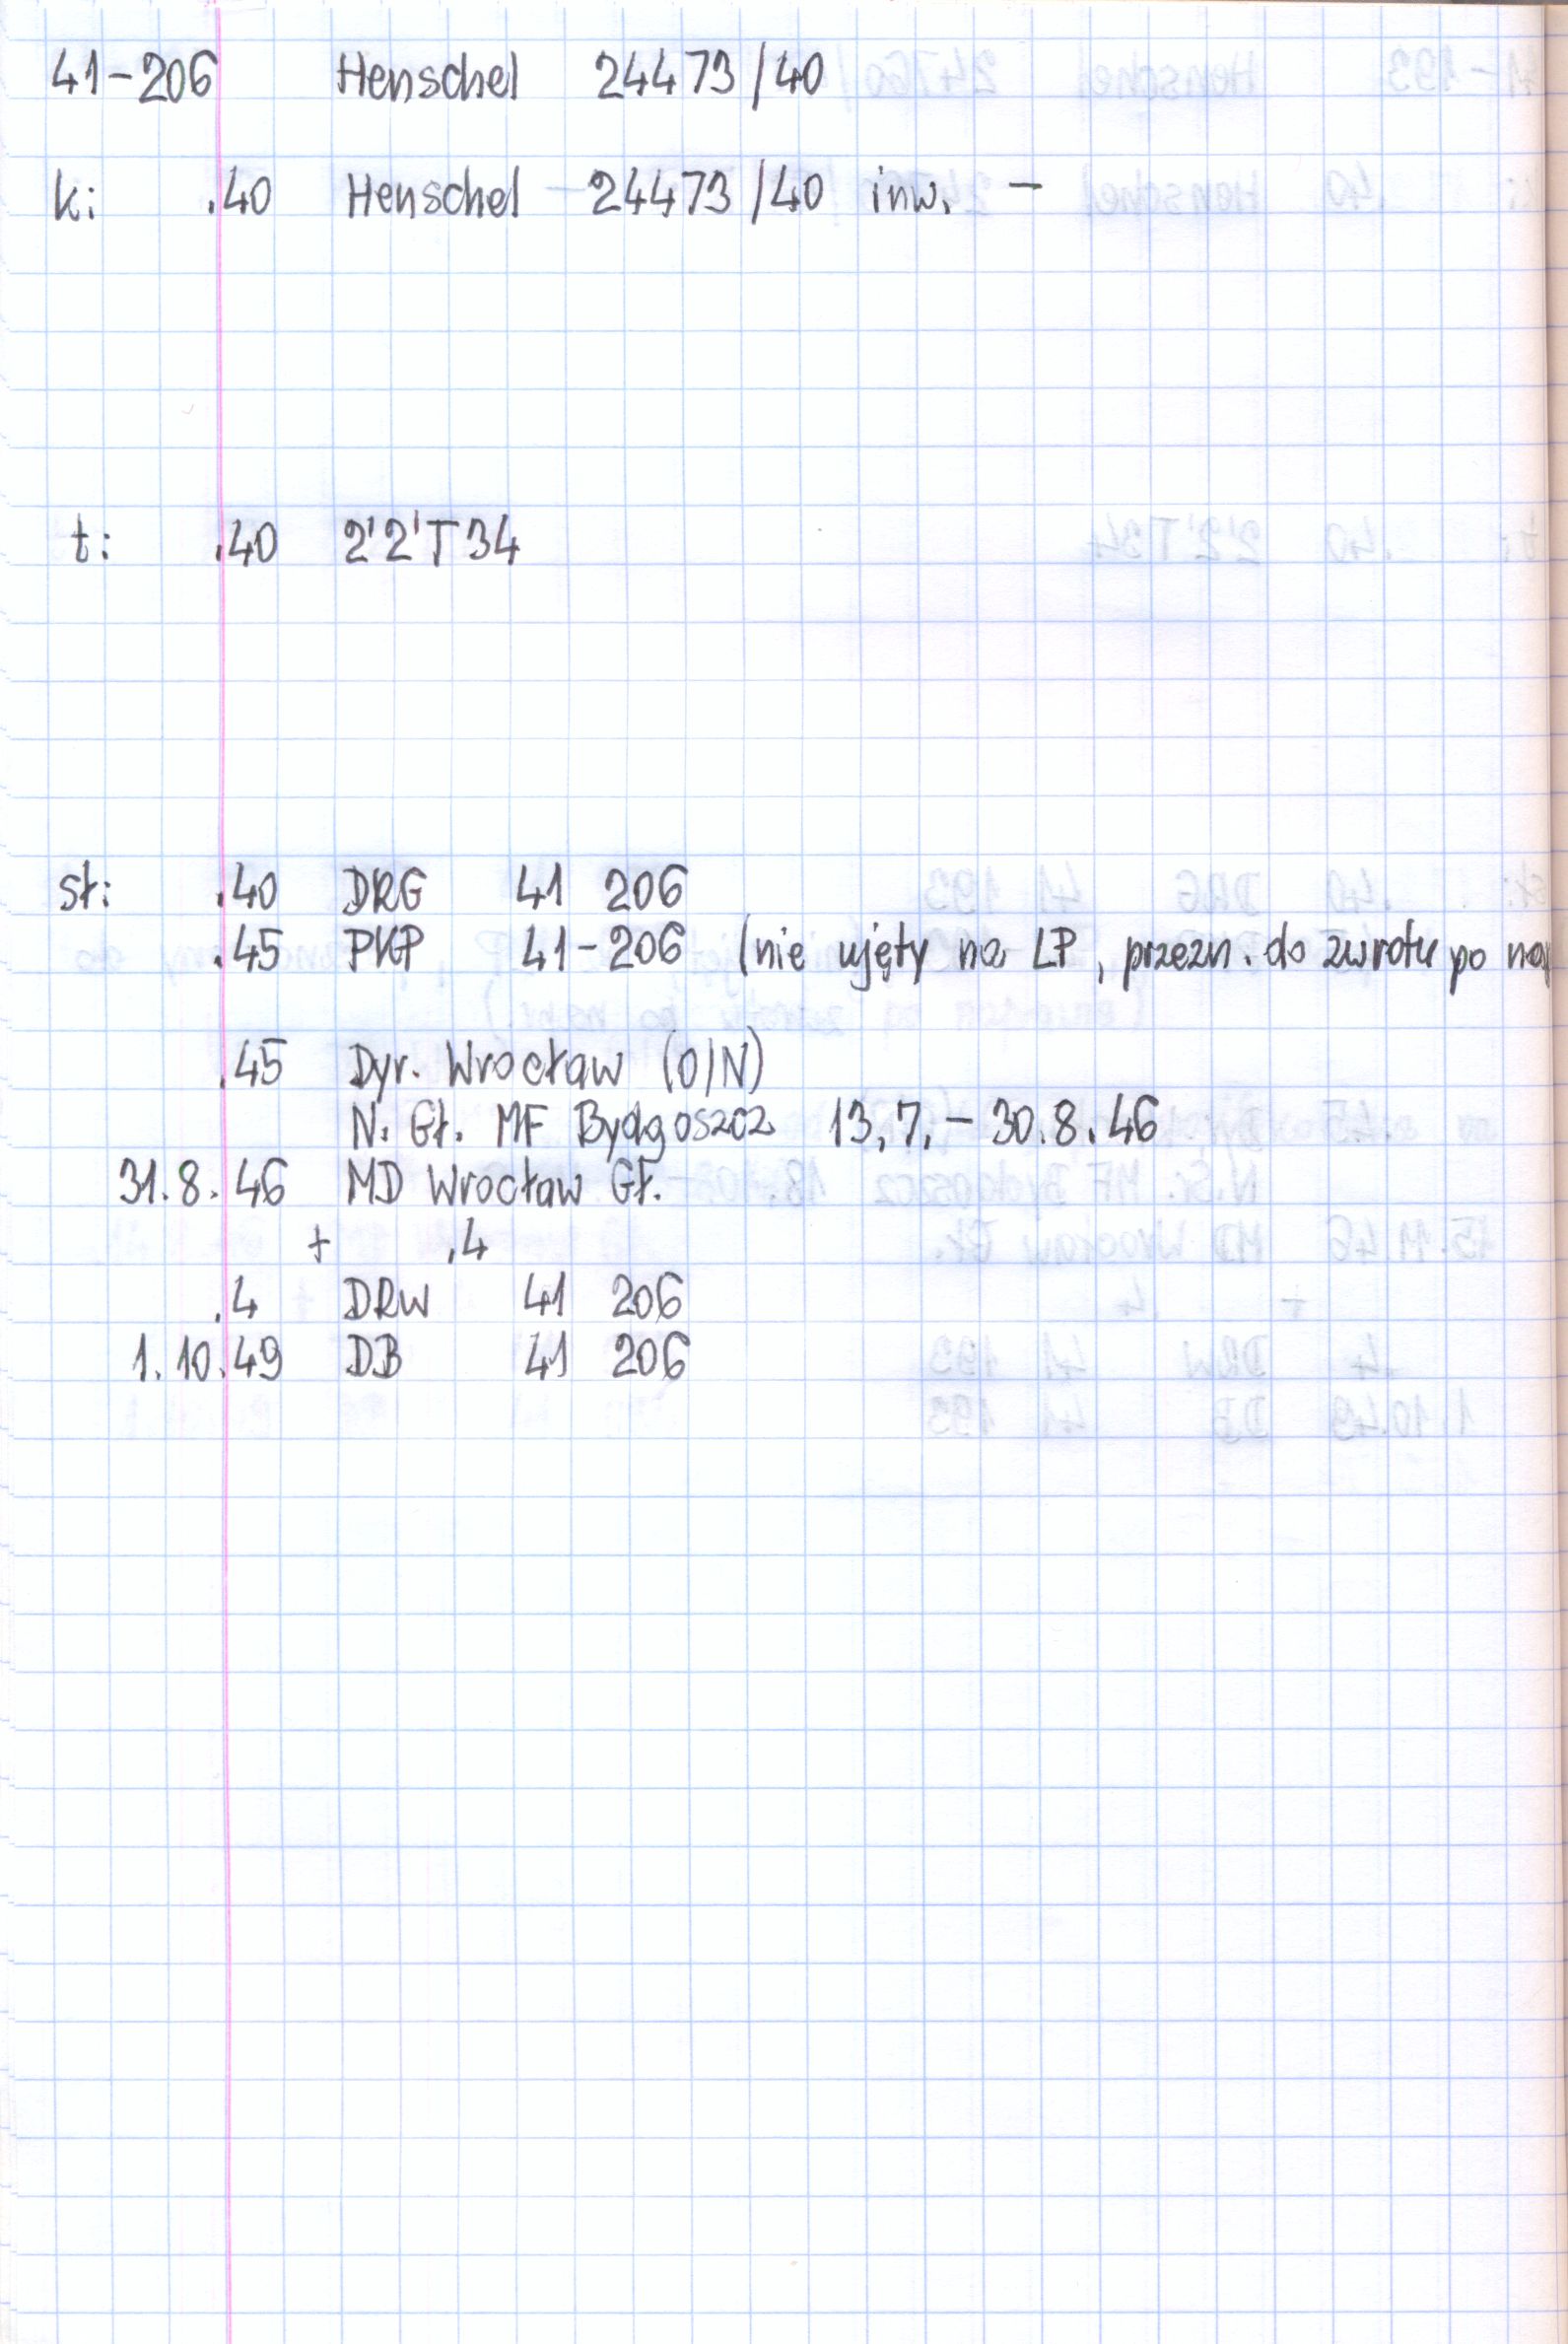 41-206 Henschel 24473/40
k: .40 Henschel 24473/40 inw. -
t: .40 2'2'T34
st: .40 DRG 41 206
.45 PKP 41-206 (nie ujęty na LP, przezn. do zwrotu po
.45 Dyr. Wrocław (O/N)
N. Gł. MF Bydgoszcz 13.7.- 30.8.46
31.8.46 MD Wrocław Gł.
+ .4
.4 DRW 41 206
1.10.49 DB 41 206